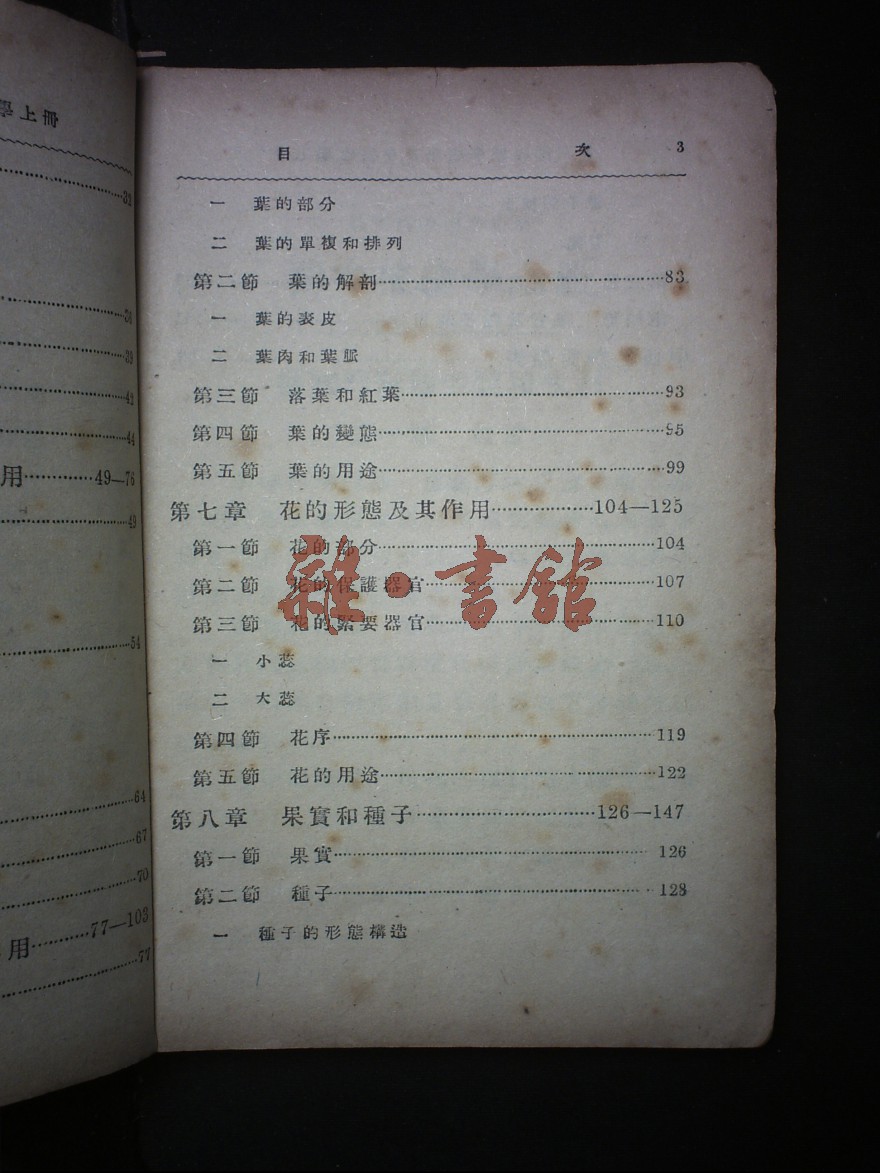 學上冊
32
36
39
42
44
用…………49—76
49
54
64
67
70
用…………77—103
77
目 次 3
一 葉的部分
二 葉的單複和排列
第二節 葉的解剖…………83
一 葉的表皮
二 葉肉和葉脈
第三節 落葉和紅葉…………93
第四節 葉的變態…………95
第五節 葉的用途…………99
第七章 花的形態及其作用…………104—125
第一節 花的部分…………104
第二節 花的保護器官…………107
第三節 花的緊要器官…………110
一 小蕊
二 大蕊
第四節 花序…………119
第五節 花的用途…………122
第八章 果實和種子…………126—147
第一節 果實…………126
第二節 種子…………128
一 種子的形態構造
雜·書館